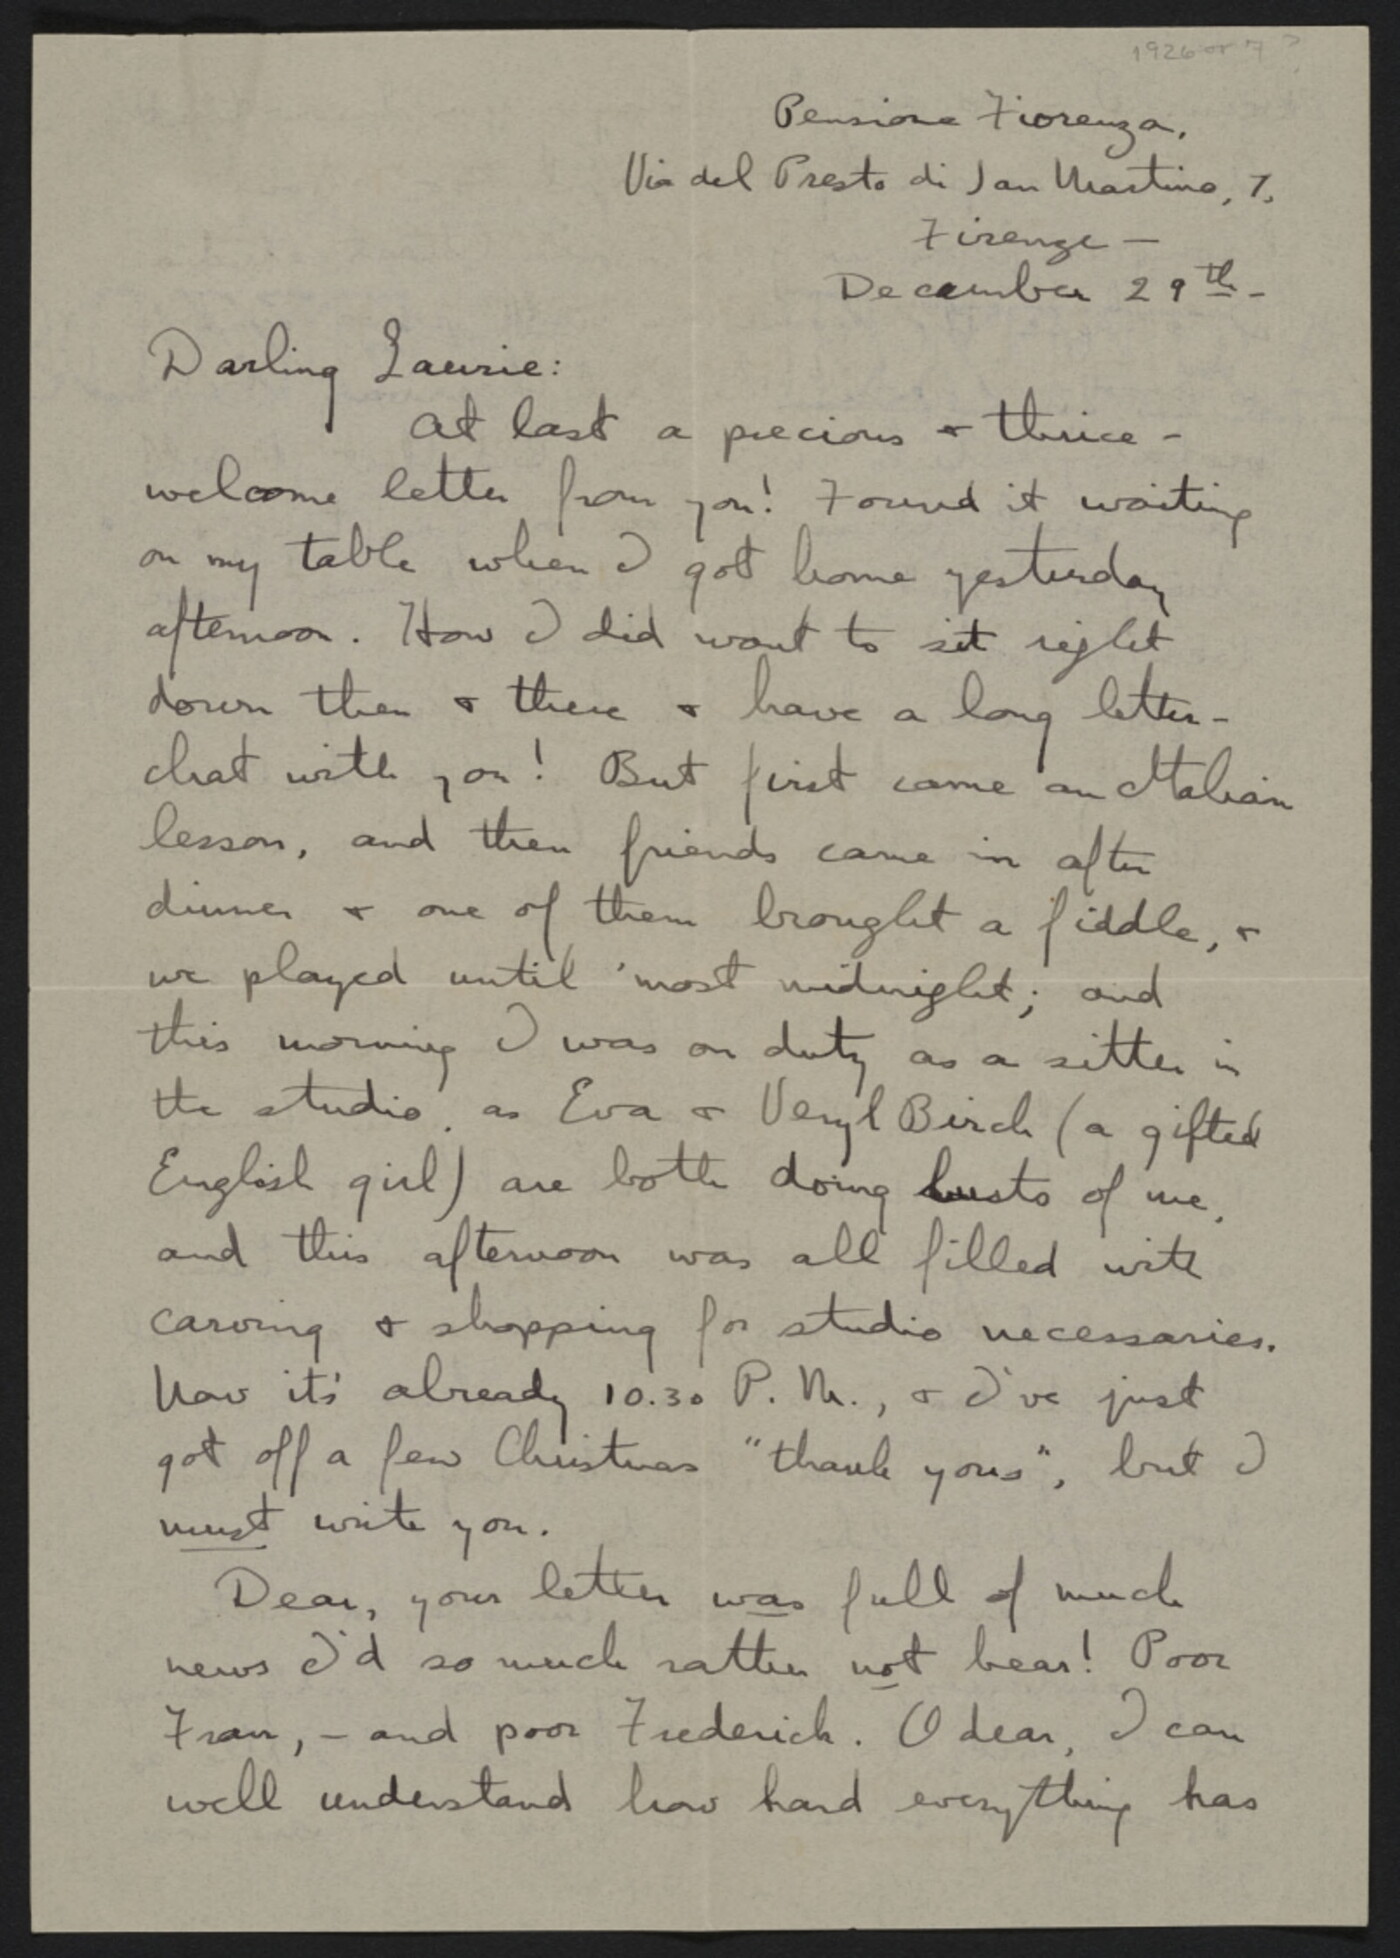 1926 or 7?
Pensione Fiorenza,
Via del Presto di San Martino, 7,
Firenze —
December 29th -
Darling Laurie:
At last a precious & thrice-
welcome letter from you! Found it waiting
on my table when I got home yesterday
afternoon. How I did want to sit right
down then & there & have a long letter-
chat with you! But first came an Italian
lesson, and then friends came in after
dinner & one of them brought a fiddle, &
we played until 'most midnight; and
this morning I was on duty as a sitter in
the studio, as Eva & Veryl Birch (a gifted
English girl) are both doing busts of me,
and this afternoon was all filled with
carving & shopping for studio necessaries.
Now it's already 10.30 P.M., & I've just
got off a few Christmas "thank yous", but I
must write you.
Dear, your letter was full of much
news I'd so much rather not hear! Poor
Fran, - and poor Frederick. O dear, I can
well understand how hard everything has